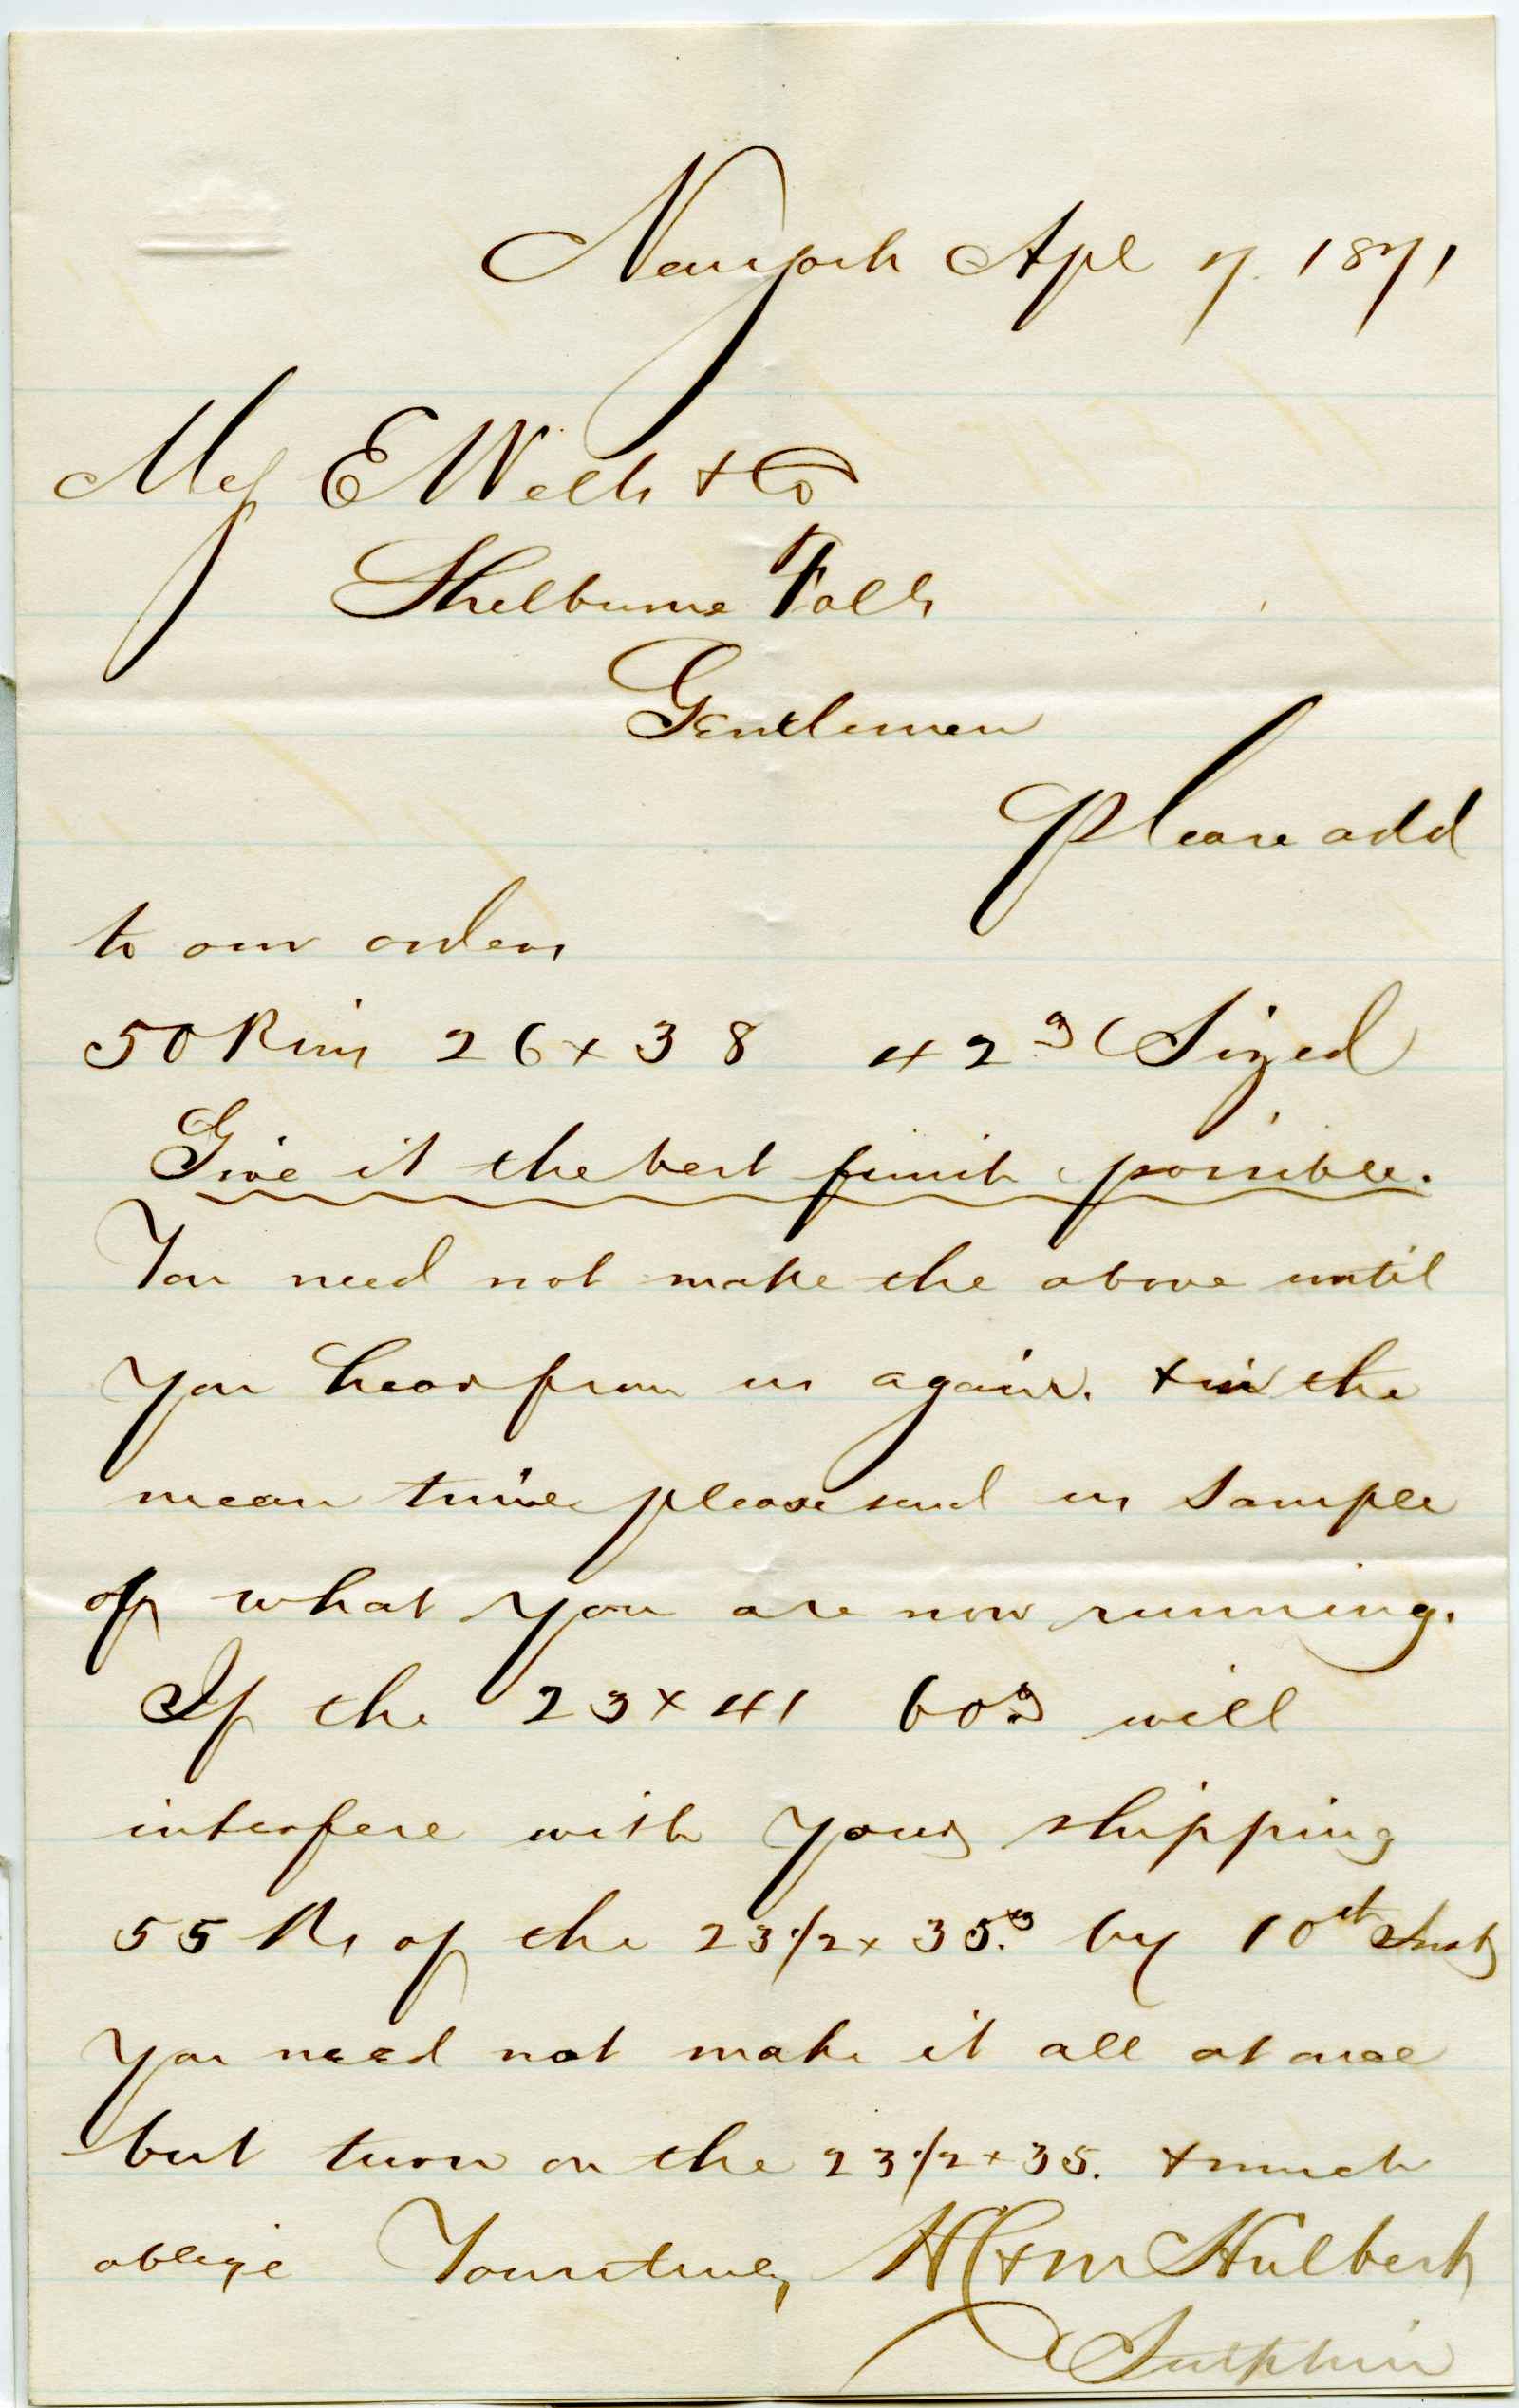 Newyork Apl 7. 1871
Mess E Wells & Co
Shelburne Falls
Gentlemen
Please add
to our orders
50 Rms 26 x 38 42 Sized
Give it the best finish possible.
You need not make the above until
you hear from us again. & in the
mean time please send us sample
of what you are now running.
If the 23 x 41 60 will
interfere with your shipping
55 Rs of the 23 1/2 x 35. by 10th Inst
you need not make it all at once
but turn on the 23 1/2 x 35. & much
oblige Yours truly H C & M Hulbert
Sutphin